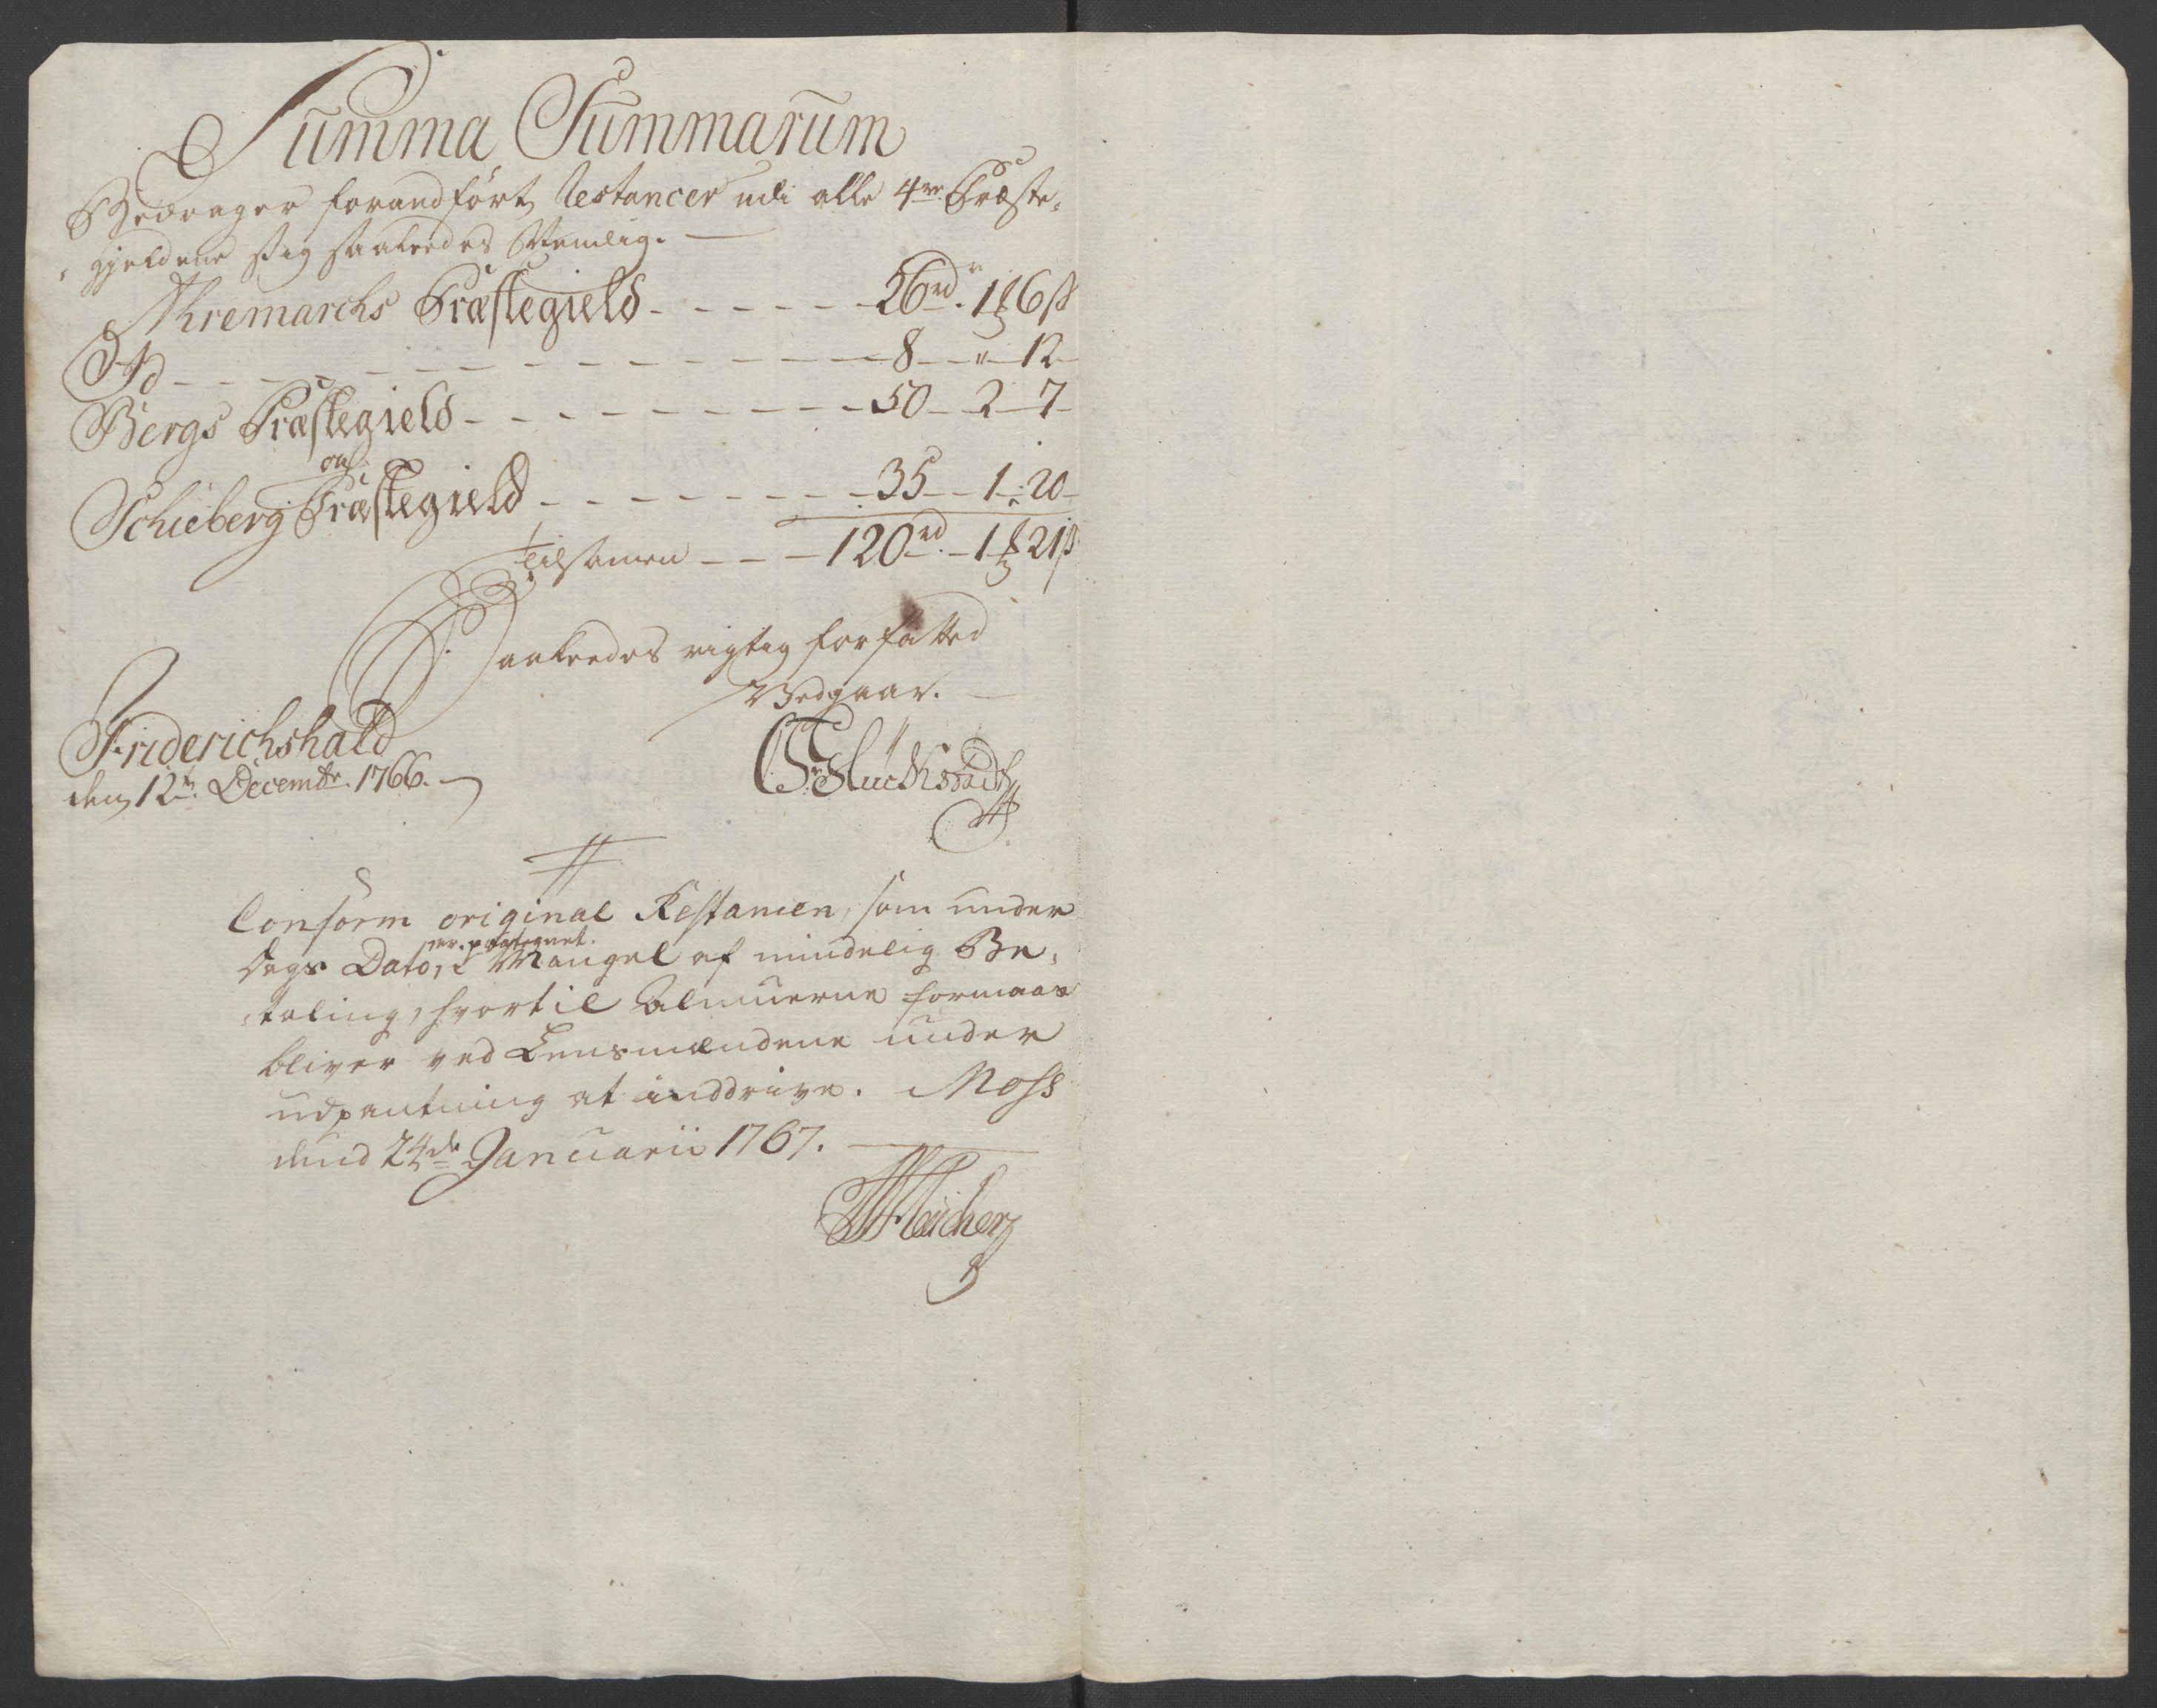 Summa Summarum
Bedrager foranførte Restancer udi alle 4re Præste-
gjeldene sig saaledes Nemlig.
Aremarchs Præstegield - - - - - 26rd. 1 ℳ 6 ß
Id - - - - - - - - 8 - " - 12 -
Bergs Præstegield - - - - - - - 50 - 2 - 7 -
og
Schieberg Præstegield - - - - - - - 35 - 1 - 20 -
Tilsamen - - - 120rd. - 1 ℳ 21 ß
Saaledes rigtig forfatted
Vedgaar.
Friderichshald
den 12te Decembr. 1766.
Glückstadt
Conform original Restancen, som under
er pategnet.
Dags Dato, i Mangel af mindelig Be-
taling, hvortil Almuerne formaas
bliver ved Lensmændene under
udpantning at inddrive. Moss
dend 24de Januarii 1767.